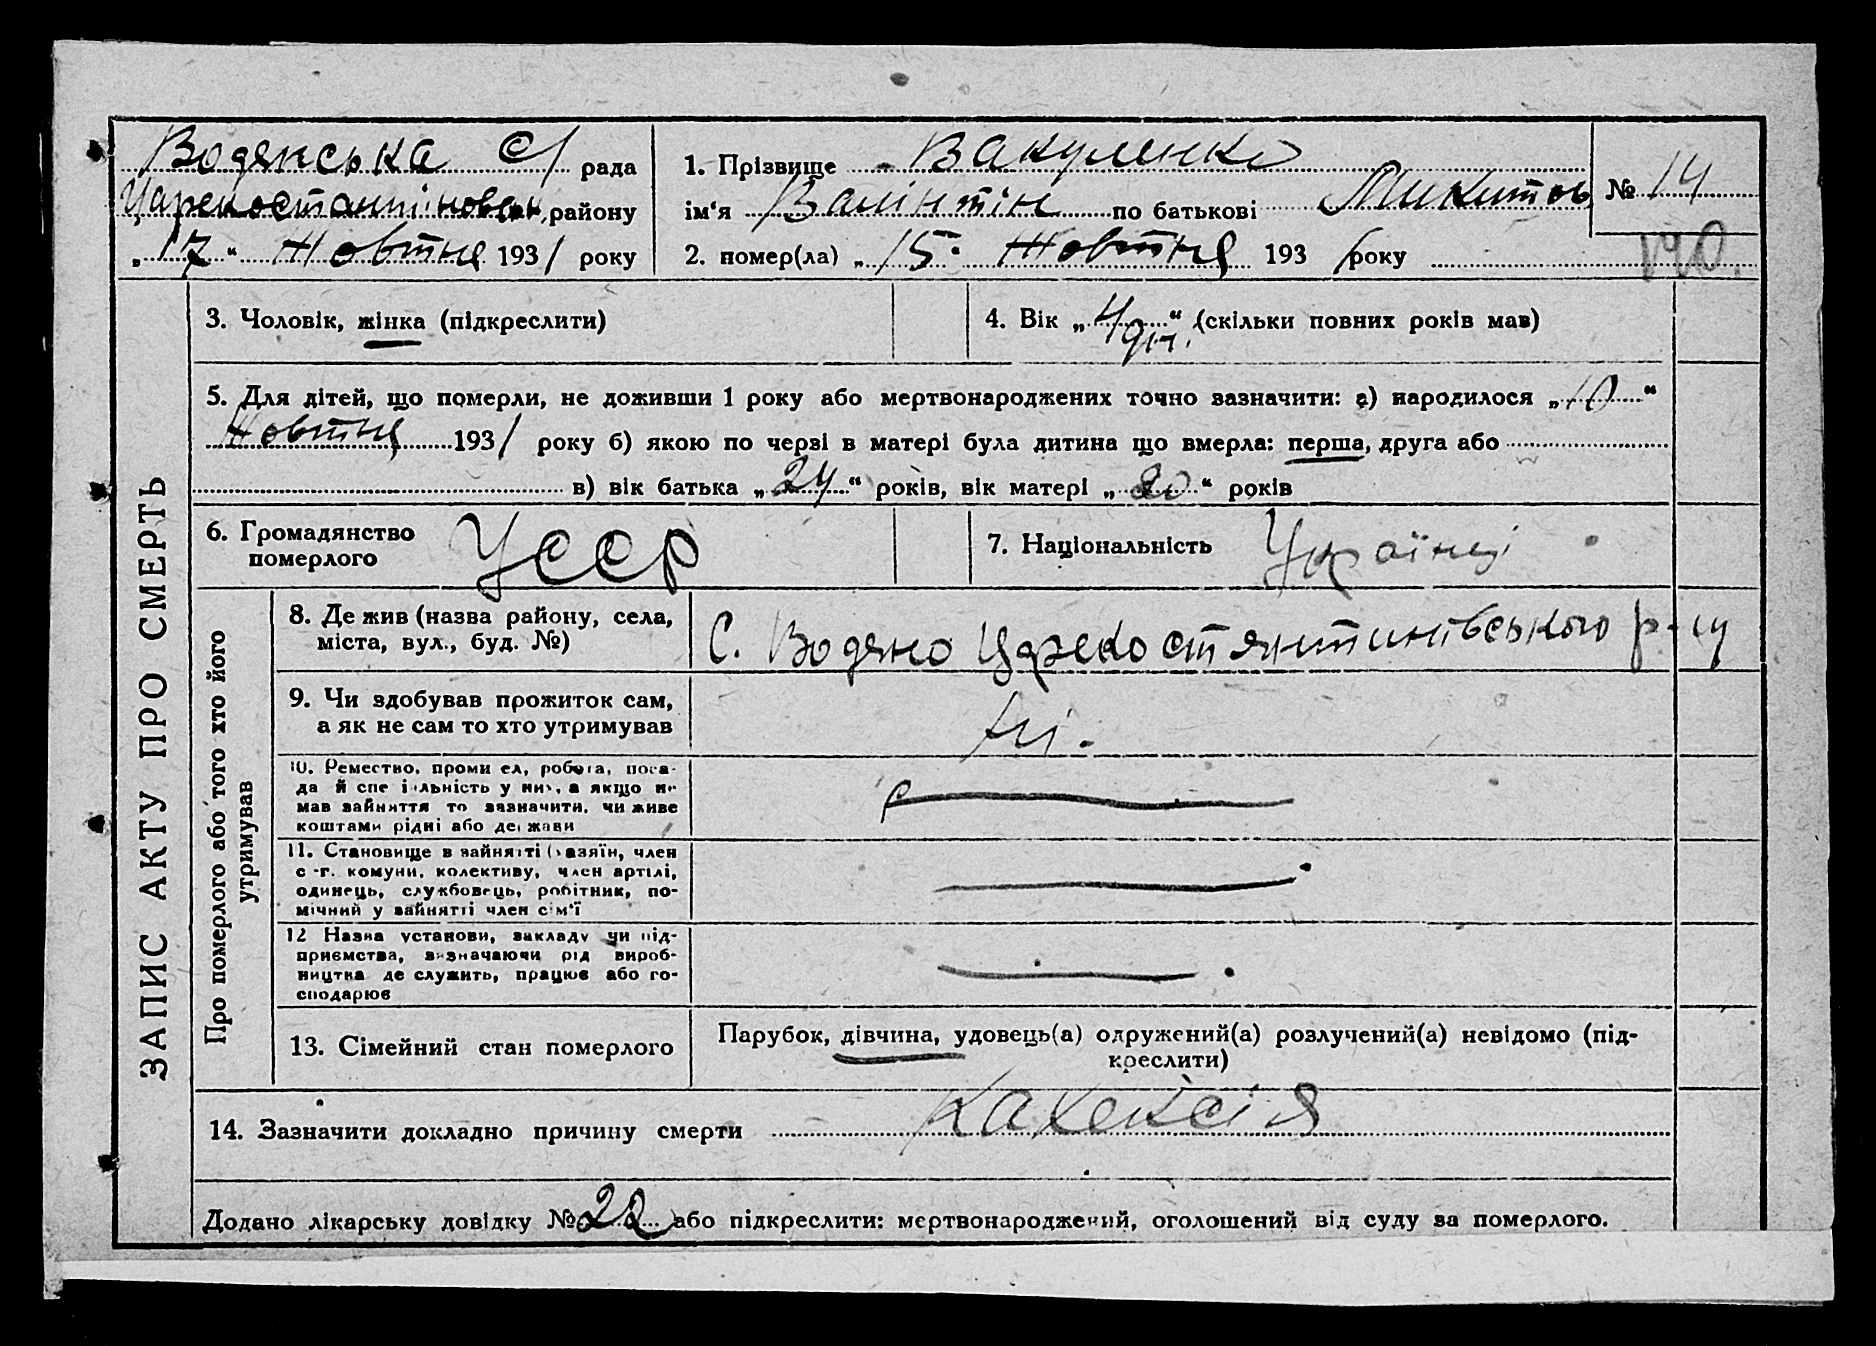 Водянська с/ рада
Царекостантіновськ району
„17“ Жовтня 1931 року
1. Прізвище Вакуленко
ім'я Валінтін по батькові Микитов
2. помер(ла) „15“ Жовтня 1931 року
№ 14
140.
3. Чоловік, жінка (підкреслити)
4. Вік „4 дн.“ (скільки повних років мав)
5. Для дітей, що померли, не доживши 1 року або мертвонароджених точно зазначити: а) народилося „10“
Жовтня 1931 року б) якою по черві в матері була дитина що вмерла: перша, друга або
в) вік батька „24“ років, вік матері „20“ років
6. Громадянство
померлого
УССР
7. Національність Українці
ЗАПИС АКТУ ПРО СМЕРТЬ
Про померлого або того хто його
утримував
8. Де жив (назва району, села,
міста, вул., буд. №)
С. Водяно Царекостянтинівського р-ну
9. Чи здобував прожиток сам,
а як не сам то хто утримував
Ні.
10. Ремество, промисел, робота, поса-
да й спеціальність у них, а якщо не
мав зайняття то зазначити, чи живе
коштами рідні або держави
11. Становище в зайнятті (хазяїн, член
с.-г. комуни, колективу, член артілі,
одинець, службовець, робітник, по-
мічний у зайнятті член сім'ї
12 Назва установи, закладу чи під-
приємства, визначаючи рід вироб-
ництва де служить, працює або го-
сподарює
13. Сімейний стан померлого
Парубок, дівчина, удовець(а) одружений(а) розлучений(а) невідомо (під-
креслити)
14. Зазначити докладно причину смерти Кахексія
Додано лікарську довідку № 22 або підкреслити: мертвонароджений, оголошений від суду за померлого.